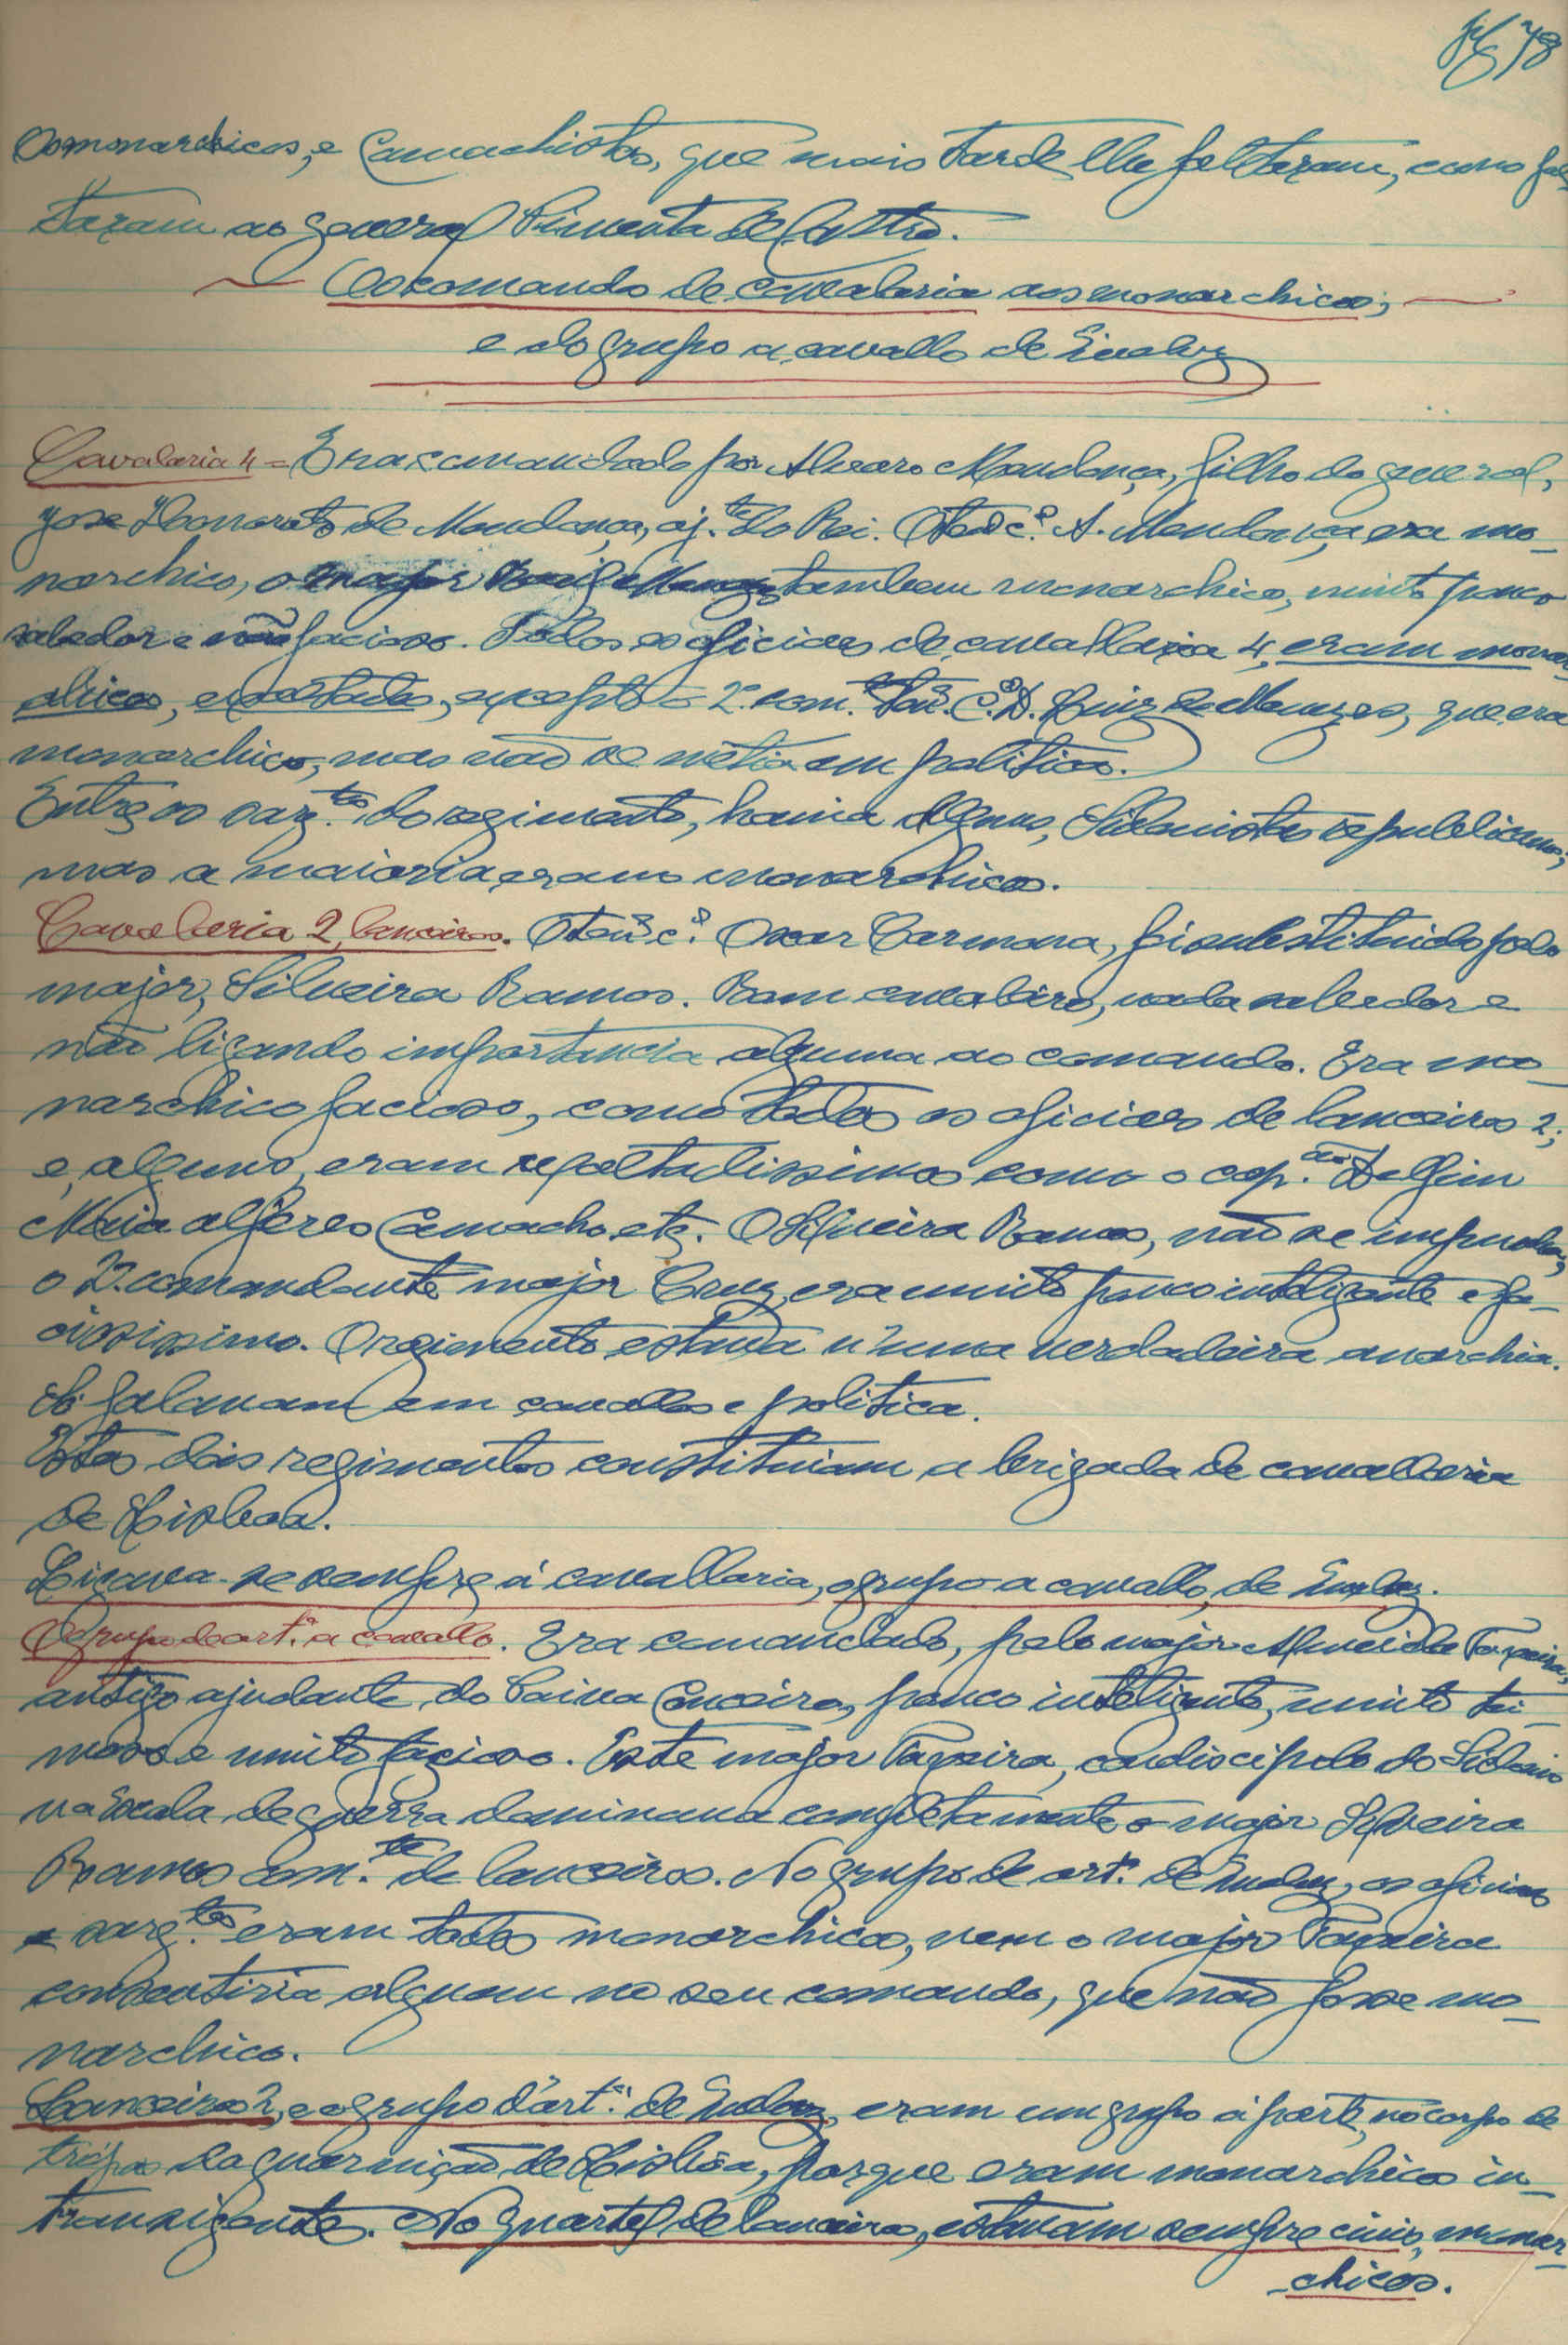 fl 78
Os monarchicos, e Camachistas, que mais tarde lhe faltaram, como fal
taram ao general Pimenta de Castro.
Os comandos de cavalaria aos monarchicos;
e do grupo a cavallo de Queluz
Cavalaria 4 = Era comandada por Alvaro Mendonça, filho do general,
José Honorato de Mendonça, aj.te do Rei. O ten.e c.el A. Mendonça era mo-
narchico, o major tambem monarchico, muito pouco
sabedor e não facioso. Todos os oficiaes de cavallaria 4, eram monar
chicos, exaltados, excepto o 2º com.te ten.e c.el D. Luiz de Menezes, que era
monarchico, mas não se metia em politica.
Entre os sarg.tos do regimento, havia alguns, Sidonistas republicanos,
mas a maioria, eram monarchicos.
Cavalaria 2, lanceiros. O ten.e c.el Oscar Carmona, foi substituido pelo
major, Silveira Ramos. Bom cavaleiro, nada sabedor e
não ligando importancia alguma ao comando. Era mo-
narchico facioso, como todos os oficiaes de lanceiros 2;
e, alguns, eram exaltadissimos como o cap.ão Delfim
Maia alferes Camacho, etc. O Silveira Ramos, não se impunha,
o 2º comandante major Cruz, era muito pouco inteligente e fa-
ciosissimo. O regimento estava n'uma verdadeira anarchia.
Só falavam em cavallos e politica.
Estes dois regimentos constituiam a brigada de cavallaria
de Lisboa.
Ligava-se sempre á cavallaria, o grupo a cavallo, de Queluz.
O grupo de art.a a cavallo. Era comandado, pelo major Almeida Taveira,
antigo ajudante do Paiva Couceiro, pouco inteligente, muito tei-
moso e muito facioso. Este major Taveira, condiscipulo do Sidonio
na Escola de guerra dominava completamente o major Silveira
Ramos com.te de lanceiros. No grupo de art.a de Queluz, os oficiaes
e sarg.tos eram todos monarchicos, nem o major Taveira
consentiria alguem no seu comando, que não fosse mo-
narchico.
Lanceiros 2, e o grupo d'art.a de Queluz, eram um grupo á parte, no corpo de
tropas da guarnição de Lisbôa, porque eram monarchicos in-
transigentes. No quartel de lanceiros, estavam sempre civis, monar-
chicos.